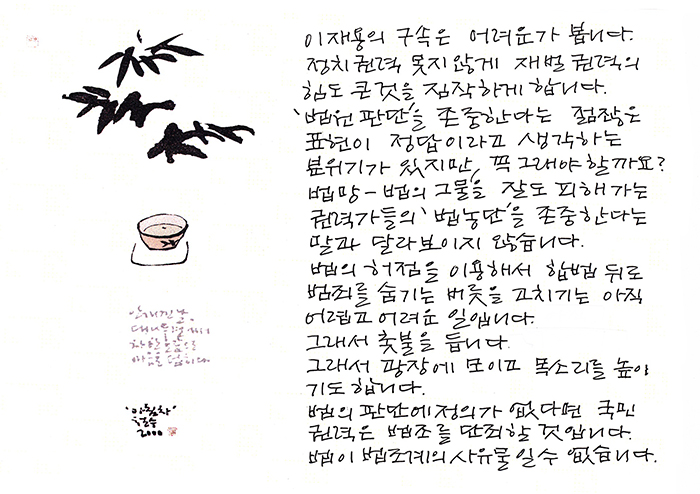 안개낀 날,
마음을
철수
2000
이재용의 구속은 어려운가 봅니다.
정치권력 못지않게 재벌 권력의
힘도 큰것을 짐작하게 합니다.
'법원 판단'을 존중한다는 점잖은
표현이 정답이라고 생각하는
분위기가 있지만, 꼭 그래야 할까요?
법망-법의 그물'을 잘도 피해 가는
권력가들의 '법농단'을 존중한다는
말과 달라보이지 않습니다.
법의 허점을 이용해서 합법 뒤로
범죄를 숨기는 버릇을 고치기는 아직
어렵고 어려운 일입니다.
그래서 촛불을 듭니다.
그래서 광장에 모이고 목소리를 높이
기도 합니다.
법의 판단에 정의가 없다면 국민
권력은 법조를 단죄할 것입니다.
법이 법조계의 사유물 일 수 없습니다.